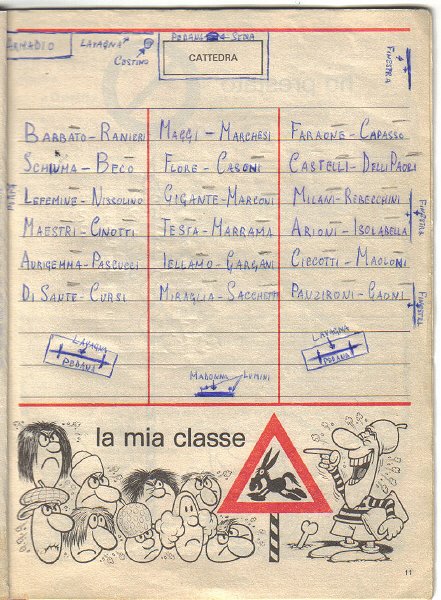 ARMADIO LAVAGNA CESTINO PEDANA SEDIA
CATTEDRA
FINESTRA
BARBATO-RANIERI MAGGI-MARCHESI FARAONE-CAPASSO
SCHIUMA-BECO FLORE-CASONI CASTELLI-DELLI PAOLI
LEFEMINE-NISSOLINO GIGANTE-MARCONI MILANI-REBECCHINI
MAESTRI-CINOTTI TESTA-MARRAMA ARIONI-ISOLABELLA
FINESTRA
AURIGEMMA-PASCUCCI IELLAMO-GARGANI CICCOTTI-MAOLONI
DI SANTE-CURSI MIRAGLIA-SACCHETTI PAUZIRONI-GAONI
FINESTRA
LAVAGNA LAVAGNA
PEDANA PEDANA
MADONNA LUMINI
la mia classe
11